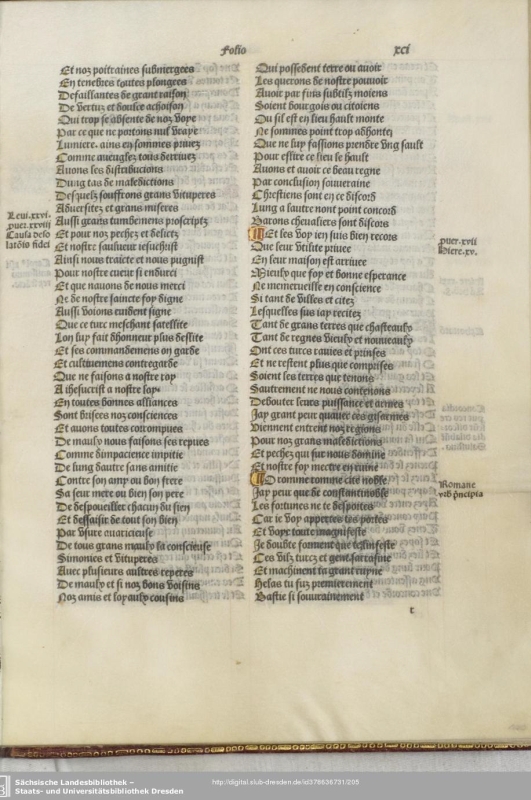 Folio xci
Et noz poitraines submergees
En tenebres toutes plongees
Defaillantes de grant raison
De vertuz et doulce achoison
Qui trop se absente de noz voye
Par ce que ne portons nul vraye
Lumiere. ains en sommes privez
Comme aveuglez tous derivez
Avons les distribucions
Dung tas de maledictions
Desquelz souffrons grans vituperes
Adversitez et grans miseres
Aussi grans tumbemens proscriptz
Et pour noz pechez et delictz
Et nostre saulueur iesuchrist
Ainsi nous traicte et nous pugnist
Pour nostre cueur si endurci
Et que navons de nous merci
Ne de nostre saincte foy digne
Aussi voions evident signe
Que ce turc meschant satellite
Lon luy fait dhonneur plus deslite
Et ses commandemens on garde
Et cultivemens contregarde
Que ne faisons a nostre roy
A ihesucrist a nostre loy
En toutes bonnes alliances
Sont brisees noz consciences
Et avons toutes corrompues
De maulx nous faisons ses repues
Comme dimpacience impitie
De lung dautre sans amitie
Contre son amy ou bon frere
Sa seur mere ou bien son pere
De despoueiller chacun du sien
Et dessaisir de tout son bien
Par usure avaricieuse
De tous grans maulx la conscieuse
Simonies et vituperes
Avec plusieurs aultres reperes
De maulx et si noz bons voisins
Noz amis et loyaulx cousins
Levi.xxvi.
puer.xxviij
Causa deso
latõis fidei
Qui possedent terre ou avoir
Les querons de nostre pouvoir
Avoir par fins subtilz moiens
Soient bourgois ou citoiens
Ou sil est en lieu hault monte
Ne sommes point trop ahhontez
Que ne luy fassions prendre ung sault
Pour eslire ce lieu se hault
Avons et avoir ce beau regne
Par conclusion souveraine
Chrestiens sont en ce discord
Lung a lautre nont point concord
Barons chevaliers sont discors
Et les voy ien suis bien recors
Que leur utilite privee
En leur maison est arrivee
Mieulx que foy et bonne esperance
Ne memerveille en conscience
Si tant de villes et citez
Lesquelles sus iay recitez
Tant de grans terres que chasteaulx
Tant de regnes vieulx et nouveaulx
Ont ces turcs ravies et prinses
Et ne restent plus que comprises
Soient les terres que tenons
Saultrement ne nous contenons
Debouter leurs puissance et armes
Jay grant peur quavec ces gisarmes
Viennent entrent noz regions
Pour noz grans maledictions
Et pechez qui sur nous domine
Et nostre foy mectre en ruine
O romme romme cite noble
Jay peur que de constantinoble
Les fortunes ne te desportes
Car ie voy appertes tes portes
Et voye toute magnifeste
Je doubte forment que tesinfeste
Ces vilz turcz et gent sarrasine
Et machinent ta grant ruyne
Helas tu fuz premierement
Bastie si souverainement
puer.xvii
Hiere.xv.
Romane
urb p̃ncipia
t
Sächsische Landesbibliothek –
Staats- und Universitätsbibliothek Dresden
http://digital.slub-dresden.de/id378636731/205